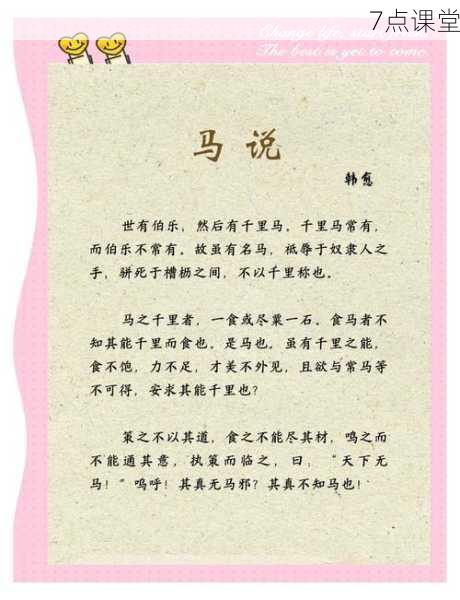 7点课堂
Change life, st
The best is yet to come.
马说
韩愈
世有伯乐，然后有千里马。千里马常有，
而伯乐不常有。故虽有名马，祗辱于奴隶人之
手，骈死于槽枥之间，不以千里称也。
马之千里者，一食或尽粟一石。食马者不
知其能千里而食也。是马也，虽有千里之能，
食不饱，力不足，才美不外见，且欲与常马等
不可得，安求其能千里也？
策之不以其道，食之不能尽其材，鸣之而
不能通其意，执策而临之，曰：“天下无
马！”呜呼！其真无马邪？其真不知马也！